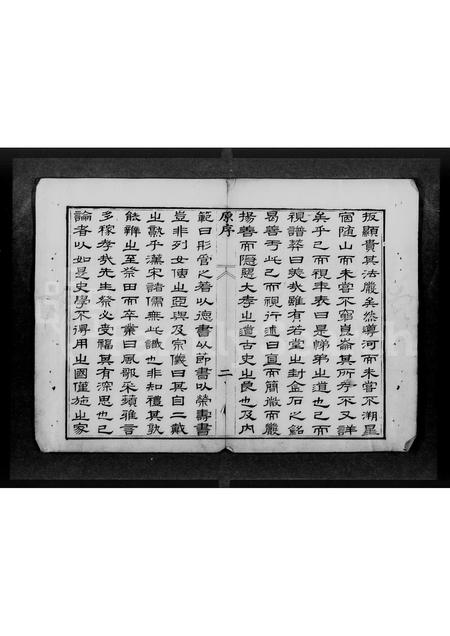 扳顯貴其法嚴矣然導河而未嘗不溯星
宿隨山而未嘗不窮崑崙其所考不又詳
矣乎已而視年表曰是悌弟之道也已而
視譜葬曰美哉雖有若堂之封金石之銘
曷善乎此已而視行述曰直而簡微而嚴
揚善而隱慝大孝之道古史之良也及內
原序
二
範曰形管之著以德書以節書以榮壽書
豈非列女傳之亞與及宗儀曰其自二戴
之勲乎漢宋諸儒無此識也非知禮其孰
能辨之至祭田而卒業曰風歌采蘋雅言
多稼孝哉先生祭必受福其有深思也已
論者以如是史學不得用之國僅施之家